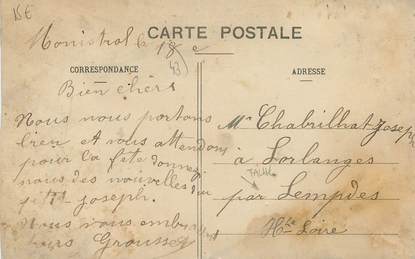 15€
CARTE POSTALE
Monistrol le 18
43
CORRESPONDANCE
ADRESSE
Bien chers
Nous nous portons
bien et nous attendons
pour la fête donnez
nous des nouvelles du
ptit joseph.
Nous vous embrassons
Mr Chabrilhat Joseph
à Lorlanges
par Lempdes
Hte Loire